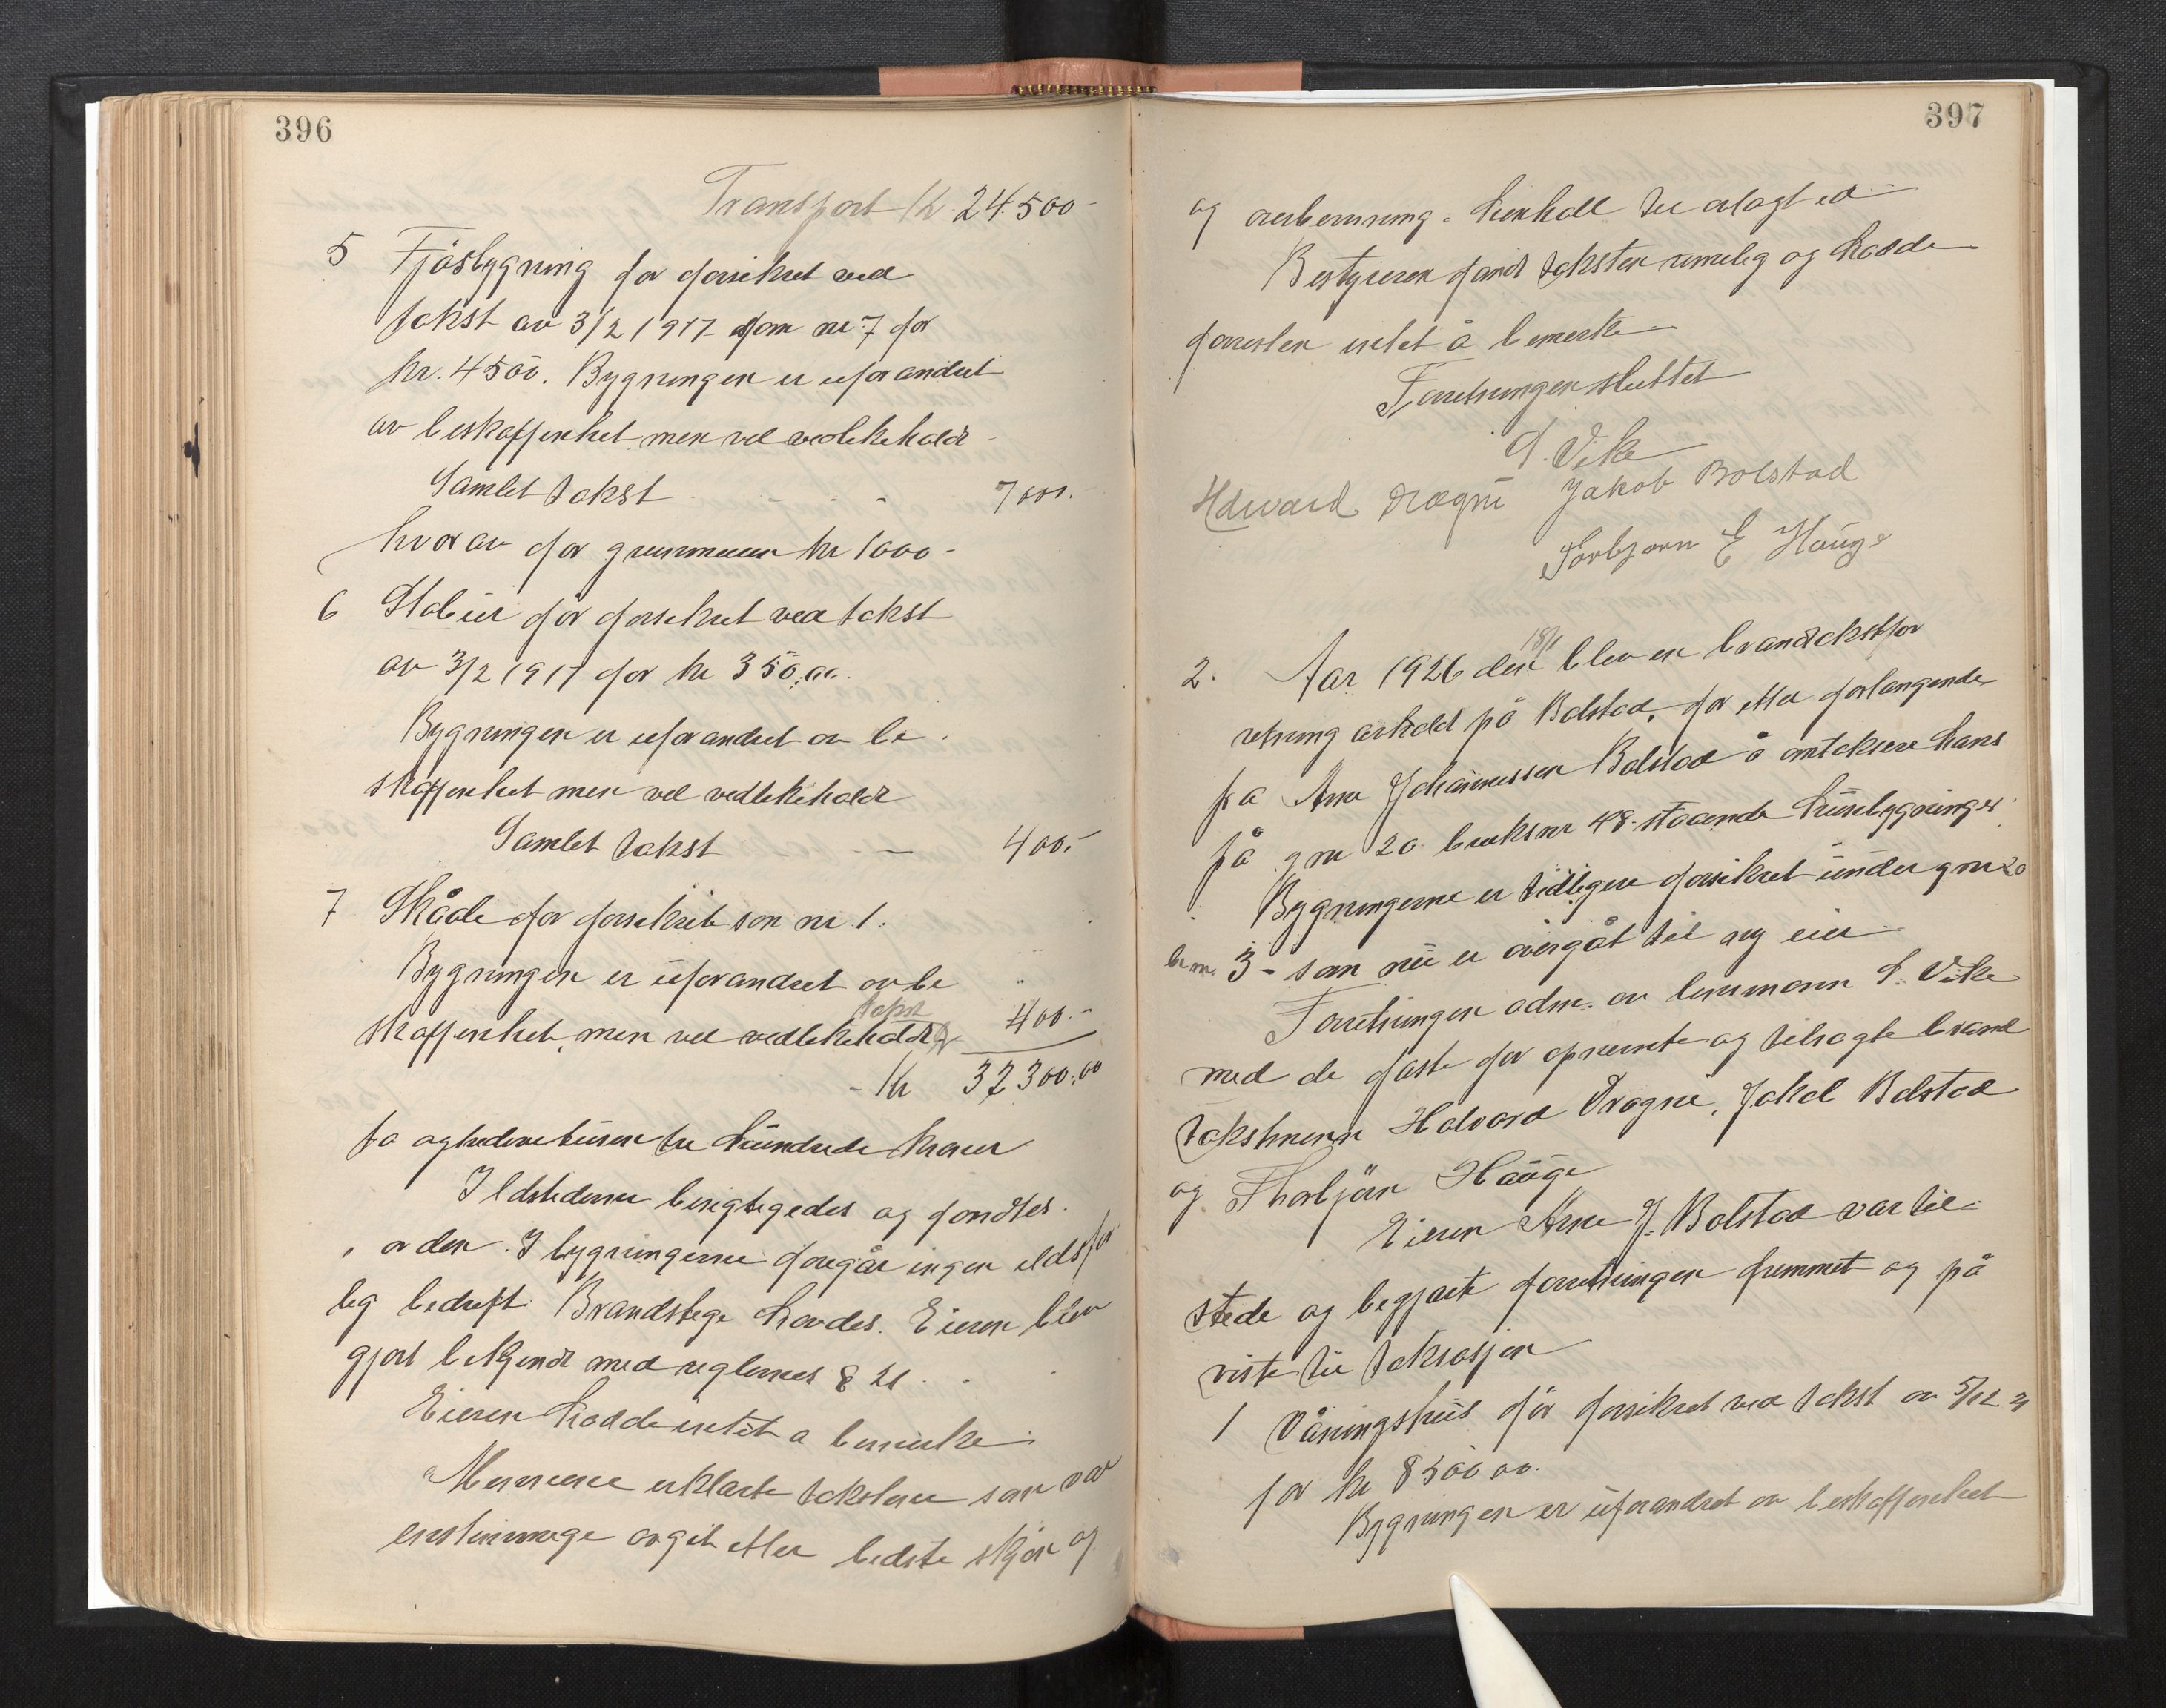 396
Transport Kr 24.500-
5 Fjösbygning før forsikret ved
takst av 3/2 1917 som nr 7 for
kr. 4500. Bygningen er uforandret
av beskaffenhet men vel vedlikeholdt
Samlet takst - - - 7000.
hvorav for grunmuren kr 1000-
6 Stabur før forsikret ved takst
av 3/2 1917 for kr 350.00.
Bygningen er uforandret av be
skaffenhet men vel vedlikeholdt
Samlet takst - - 400.-
7 Skåle før forsikret som nr 1.
Bygningen er uforandret av be
skaffenhet, men vel vedlikeholdt takst 400.-
- Kr 32300.00
to og tredive tusen tre hundrede kroner
Ildstederne besigtigedes og fandtes
i orden. I bygningerne foregår ingen eldsfar
lig bedrift. Brandstige havdes. Eieren blev
gjort bekjendt med reglernes § 21.
Eieren hadde intet a bemerke
Mennene erklærte taksterne som var
enstemmige avgit etter bedste skjøn og
397
og overbevisning i henhold til avlagt ed-
Bestyreren fandt taksten rimelig og hadde
forresten intet å bemerke
Forretningen sluttet
S. Vike
Halvard Dragni Jakob Bolstad
Torbjørn E Hauge
2. Aar 1926 den 18/1 blev en brandtakstfor
retning avholdt på Bolstad, for etter forlangende
fra Arne Johannessen Bolstad å omtaksere hans
på gnr 20 bruksnr 48 staaende husebygninger
Bygningerne er tidligere forsikret under gnr 20
br.nr. 3 - som nu er overgåt til ny eier
Forretningen adm. av lensmann S. Vike
med de faste før opnevnte og tilsagte brand
takstmenn Halvard Dragni, Jakob Bolstad
og Thorbjörn Hauge
Eieren Arne J. Bolstad var til
stede og begjærte forretningen fremmet og på
viste til taksasjon
1 Våningshus før forsikret ved takst av 5/12 21
for kr 8500 00.
Bygningen er uforandret av beskaffenhet